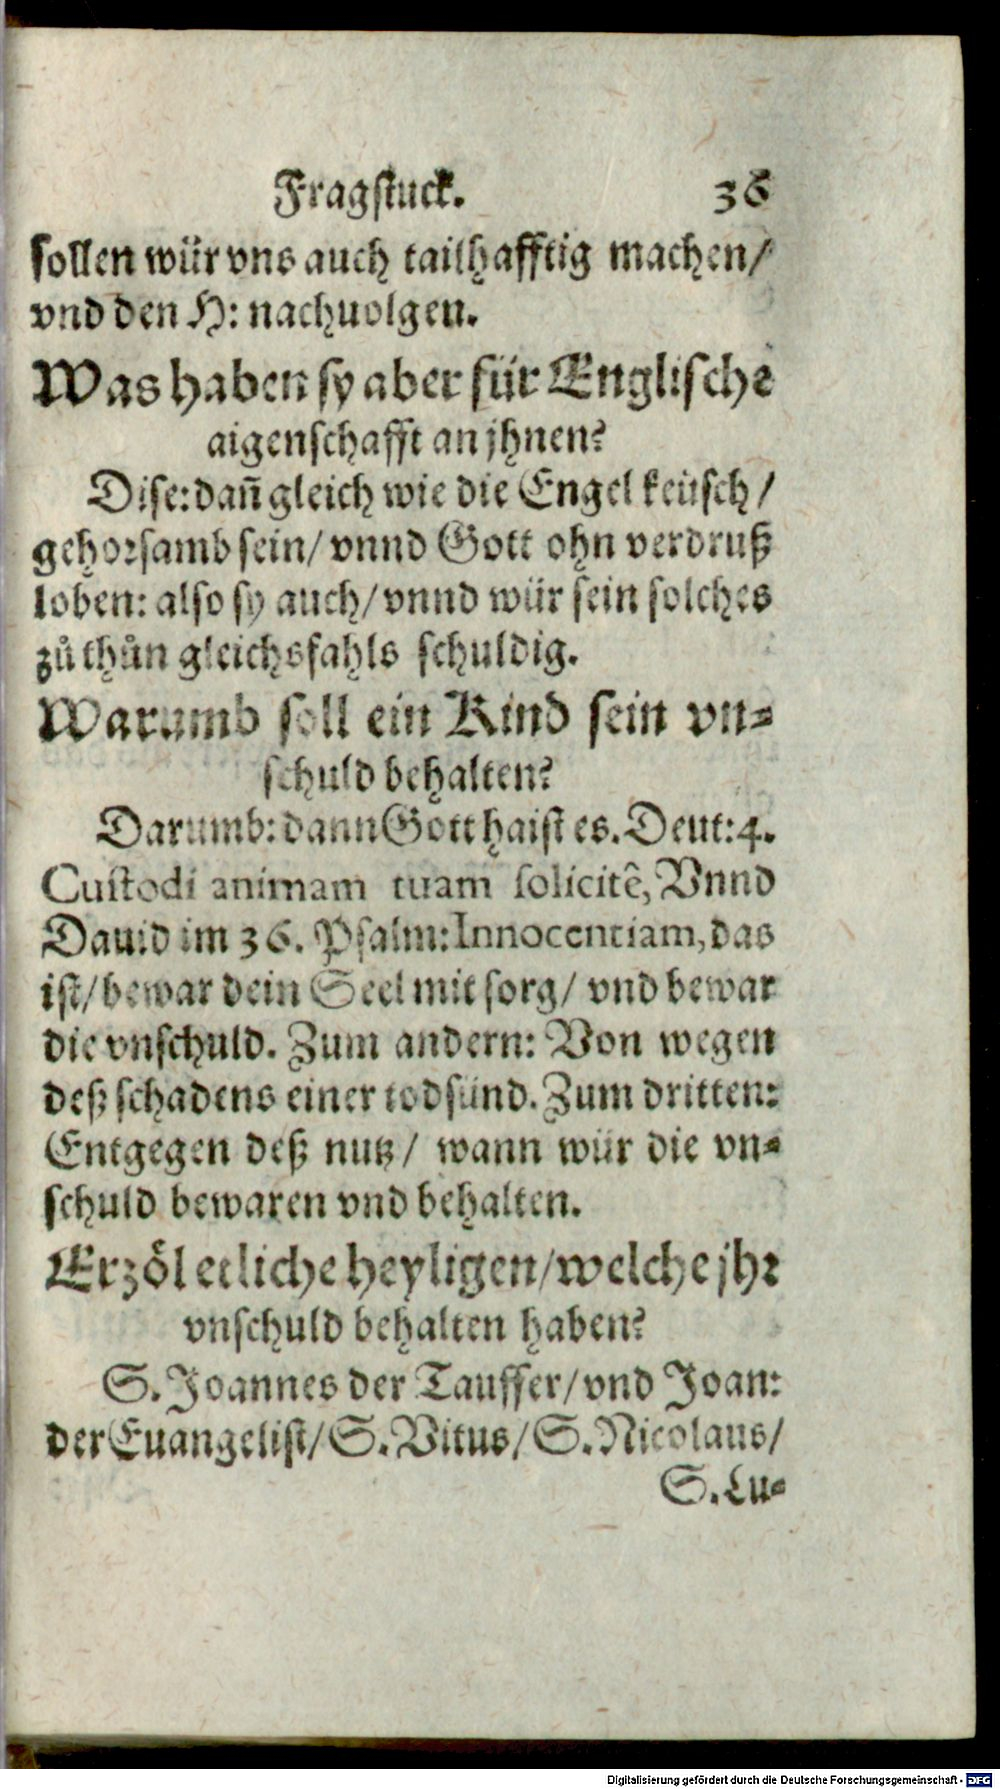 Fragstuck. 36
sollen wür vns auch tailhafftig machen/
vnd den H: nachuolgen.
Was haben sy aber für Englische
aigenschafft an jhnen?
Dise: dañ gleich wie die Engel keüsch/
gehorsamb sein/ vnnd Gott ohn verdruß
loben: also sy auch/ vnnd wür sein solches
zů thůn gleichsfahls schuldig.
Warumb soll ein Kind sein vn⸗
schuld behalten?
Darumb: dann Gott haist es. Deut: 4.
Custodi animam tuam solicitê, Vnnd
Dauid im 36. Psalm: Innocentiam, das
ist/ bewar dein Seel mit sorg/ vnd bewar
die vnschuld. Zum andern: Von wegen
deß schadens einer todsünd. Zum dritten:
Entgegen deß nutz/ wann wür die vn⸗
schuld bewaren vnd behalten.
Erzöl etliche heyligen/ welche jhr
vnschuld behalten haben?
S. Joannes der Tauffer/ vnd Joan:
der Euangelist/ S. Vitus/ S. Nicolaus/
S. Lu⸗
Digitalisierung gefördert durch die Deutsche Forschungsgemeinschaft - DFG